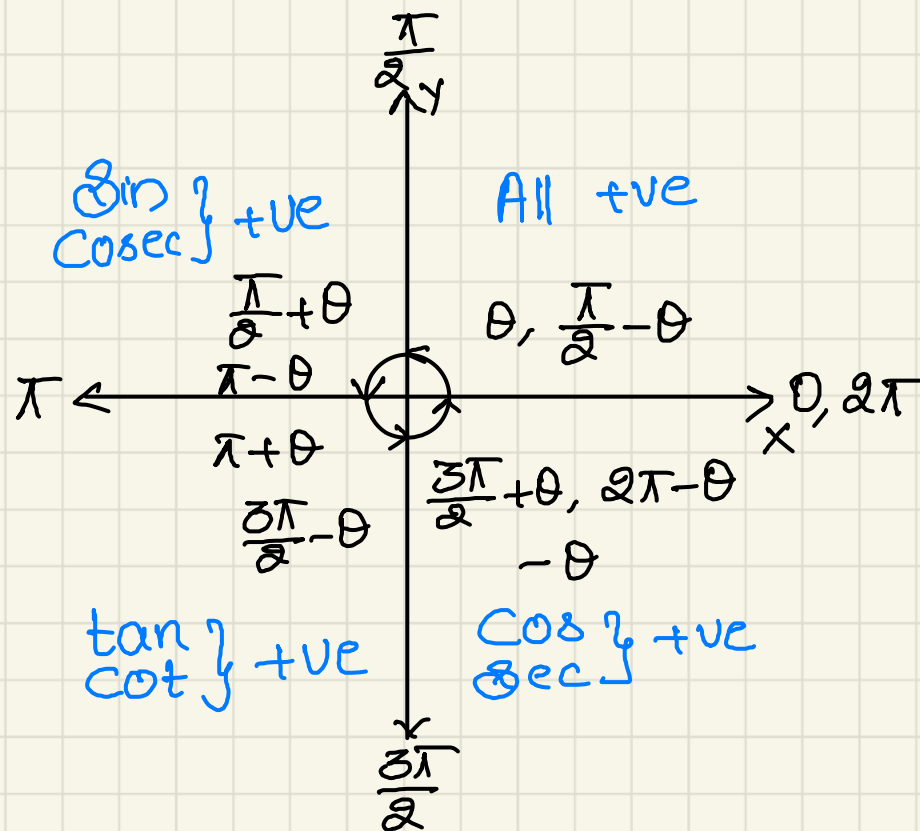 π/2
y
Sin
Cosec } +ve
All +ve
π/2 + θ
θ, π/2 - θ
π - θ
π
0, 2π
x
π + θ
3π/2 + θ, 2π - θ
3π/2 - θ
- θ
tan
cot } +ve
Cos
Sec } +ve
3π/2